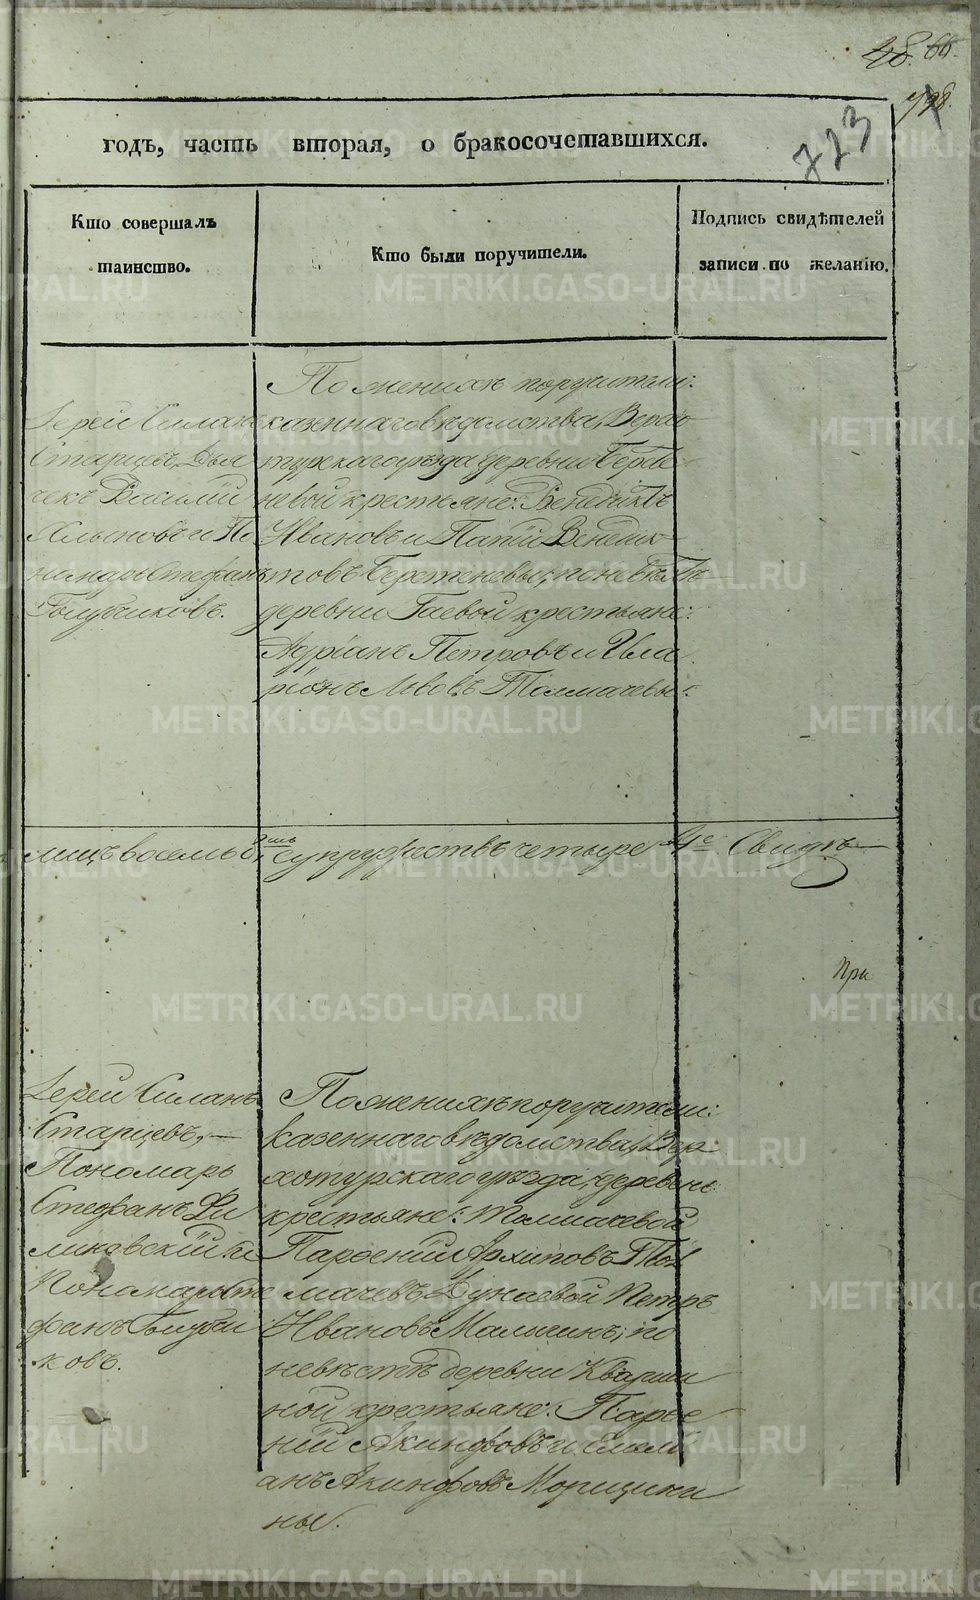 48. 66.
728.
723
годъ, часть вторая, о бракосочетавшихся.
Кто совершалъ
таинство.
Кто были поручители.
Подпись свидѣтелей
записи по желанію.
Іерей Силанъ
Старцевъ, Дья
чекъ Василій
и По
номарь Стефанъ
Голубчиковъ.
По женихѣ поручители:
казеннаго вѣдомства, Верхо
турскаго уѣзда деревни Бере
невой крестьяне: Венедиктъ
Ивановъ и Венеди
товъ Береневы; по невѣстѣ
деревни Гаевой крестьяне:
Адріанъ Петровъ и Ила
ріонъ Львовъ Толмачевы.
лицъ восемь 8мь супружествъ четыре 4е Свидѣ
При
Іерей Силанъ
Старцевъ,
Пономарь
Стефанъ
и
Пономарь Сте
фанъ Голубчи
ковъ.
По женихѣ поручители:
Казеннаго вѣдомства, Вер
хотурскаго уѣзда, деревень
крестьяне: Толмачевой
Парѳеній Архиповъ Тол
мачевъ Дунаевой Петръ
Ивановъ Малыгинъ; по
невѣстѣ деревни Кварши
ной крестьяне: Парѳе
ній Акинфовъ и Емелі
анъ Акинфовъ Морщини
ны.
METRIKI.GASO-URAL.RU